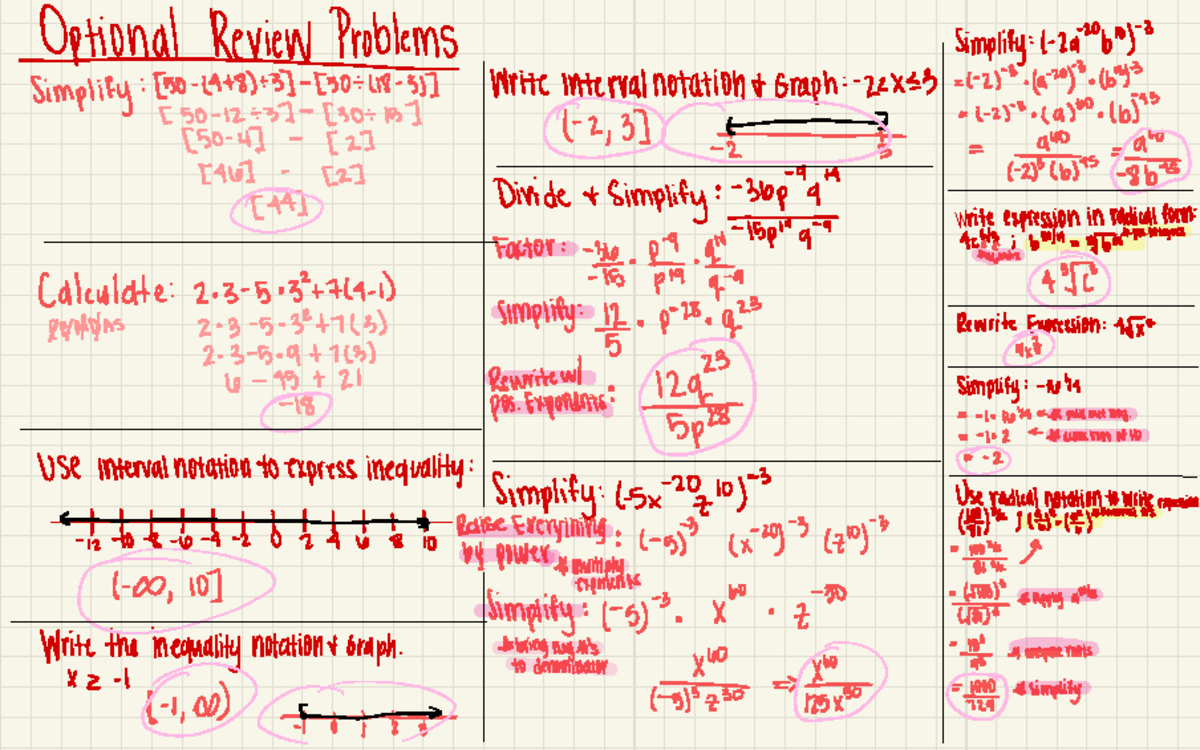 Optional Review Problems
Simplify: [50-(4+8)÷3]-[30÷(18-3)]
[50-12÷3]-[30÷15]
[50-4] - [2]
[46] - [2]
[44]
Calculate: 2·3-5·3²+7(4-1)
2·3-5·3²+7(3)
2·3-5·9+7(3)
6-45+21
-18
Use interval notation to express inequality:
-12 -10 -8 -6 -4 -2 0 2 4 6 8 10
(-∞, 10]
Write the inequality notation & Graph.
x ≥ -1
[-1, ∞)
-1
Write interval notation & Graph: -2<x≤3
(-2, 3]
-2 3
Divide & Simplify: -36p⁻⁹q¹⁴ / -15p¹⁹q⁻⁹
Factor: -36/-15 · p⁻⁹/p¹⁹ · q¹⁴/q⁻⁹
Simplify: 12/5 · p⁻²⁸ · q²³
Rewrite w/
pos. Exponents: 12q²³/5p²⁸
Simplify: (-5x⁻²⁰z¹⁰)⁻³
Raise Everything
by power : (-5)⁻³ (x⁻²⁰)⁻³ (z¹⁰)⁻³
* multiply
exponents
Simplify: (-5)⁻³ · x⁶⁰ · z⁻³⁰
to denominator
x⁶⁰/(-5)³z³⁰ => x⁶⁰/125x³⁰
Simplify: (-2a⁻²⁰b¹⁵)⁻³
=(-2)⁻³·(a⁻²⁰)⁻³·(b¹⁵)⁻³
=(-2)⁻³·(a)⁶⁰·(b)⁻⁴⁵
= a⁶⁰/(-2)³(b)⁴⁵ = a⁶⁰/-8b⁴⁵
Write expression in radical form:
Rewrite Expression:
Simplify: -16^1/4
= -1·16^1/4
= -1·2
= -2
Use radical notation to write
* simplify
= 1000/729